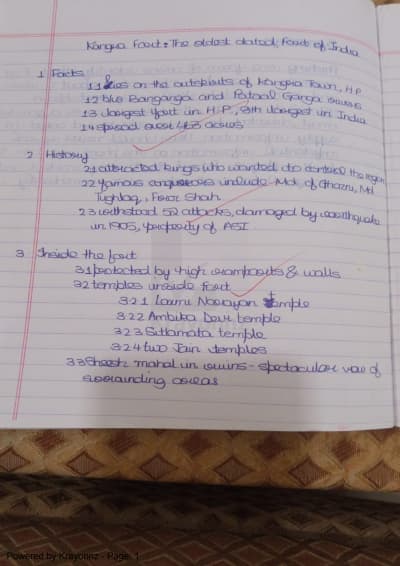 Kangra Fort: The oldest dated Fort of India
1 Facts
1.1 lies on the outskirts of Kangra Town, H.P
1.2 b/w Banganga and Pataal Ganga rivers
1.3 largest fort in H.P, 8th largest in India
1.4 spread over 463 acres
2 History
2.1 attracted kings who wanted to control the region
2.2 famous conquerors include Md. of Ghazni, Md
Tughlaq, Firoz Shah
2.3 withstood 52 attacks, damaged by earthquake
in 1905, property of ASI
3 Inside the fort
3.1 protected by high ramparts & walls
3.2 temples inside fort
3.2.1 Laxmi Narayan temple
3.2.2 Ambika Devi temple
3.2.3 Sitlamata temple
3.2.4 two Jain temples
3.3 Sheesh mahal in ruins - spectacular view of
surrounding areas
Powered by Krayonnz - Page 1